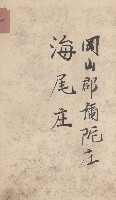 岡山郡彌陀庄
海尾庄